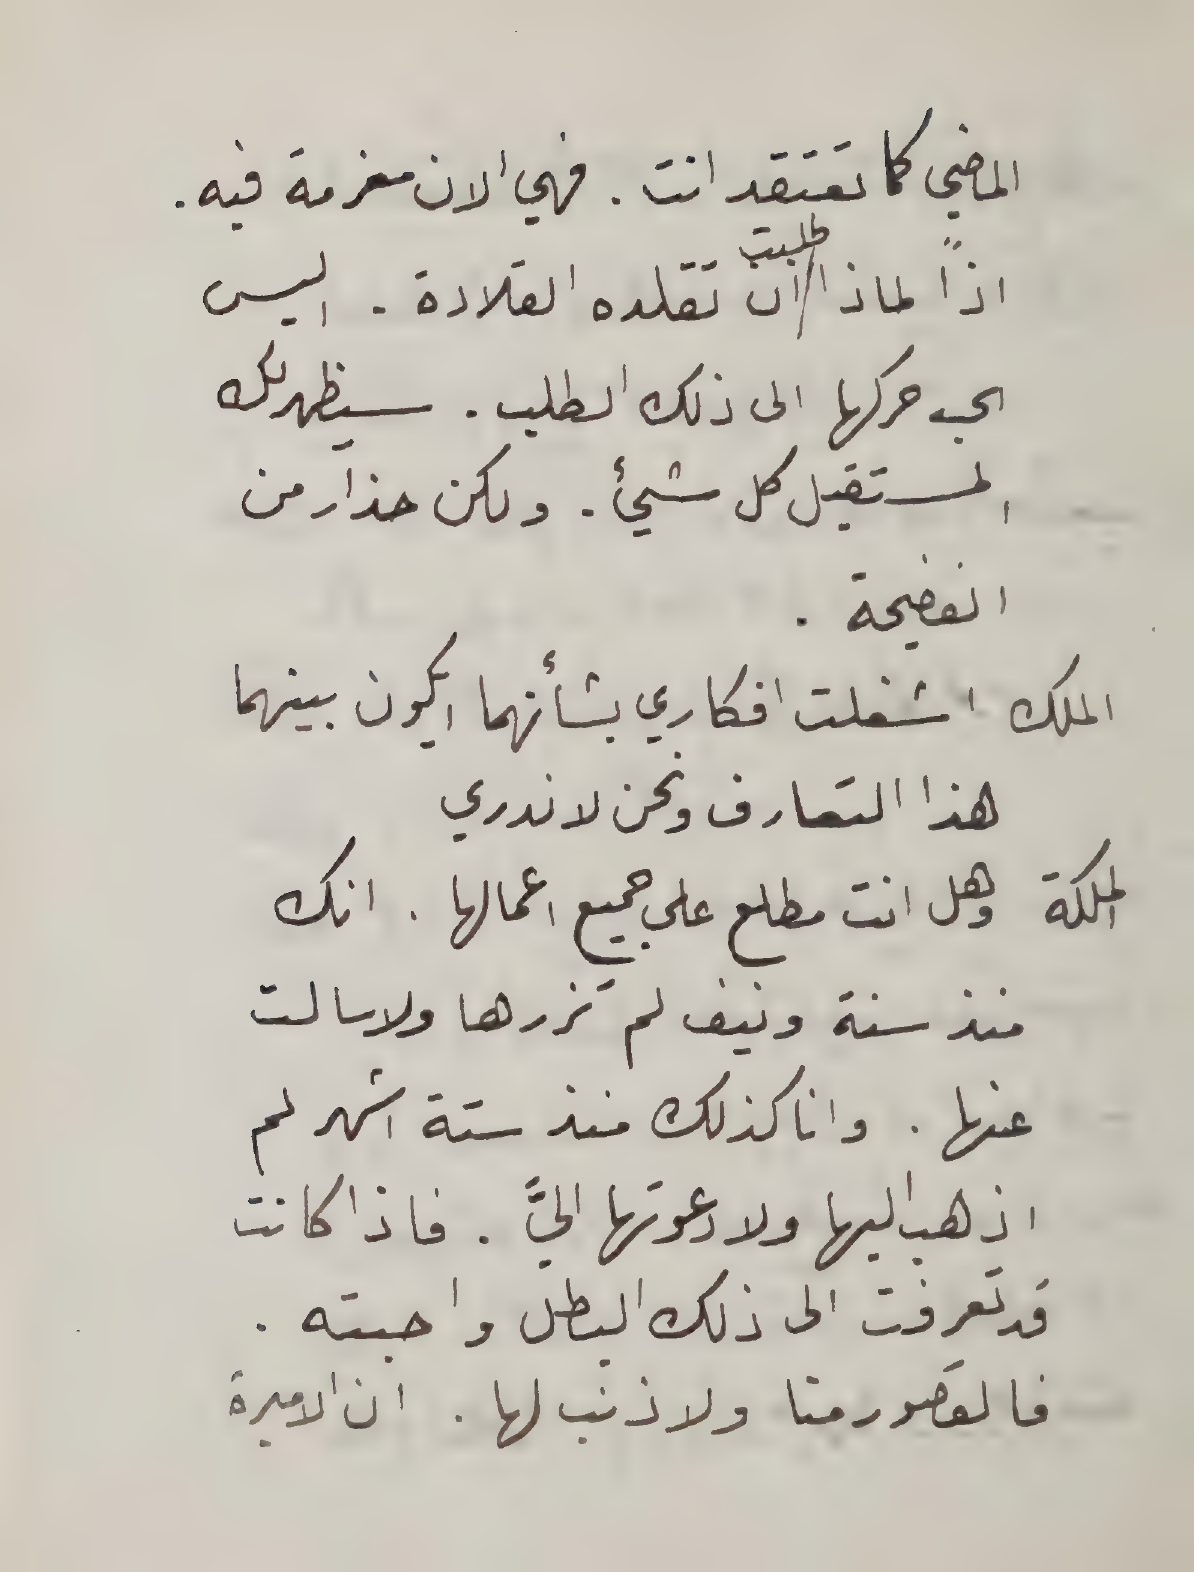 الماضي كما تعتقد انت . فهي الان مغرمة فيه .
اذاً لماذا طلبت ان تقلده القلادة . اليس
الحب حركها الى ذلك الطلب . سيظهر لك
المستقبل كل شيئ . ولكن حذار من
الفضيحة .
الملك اشغلت افكاري بشأنهما ايكون بينهما
هذا التعارف ونحن لا ندري
الملكة وهل انت مطلع على جميع اعمالها . انك
منذ سنة ونيف لم تزرها ولا سالت
عنها . وانا كذلك منذ ستة اشهر لم
اذهب اليها ولا دعوتها اليَّ . فاذا كانت
قد تعرفت الى ذلك البطل واحبته .
فالقصور منا ولا ذنب لها . ان الاميرة